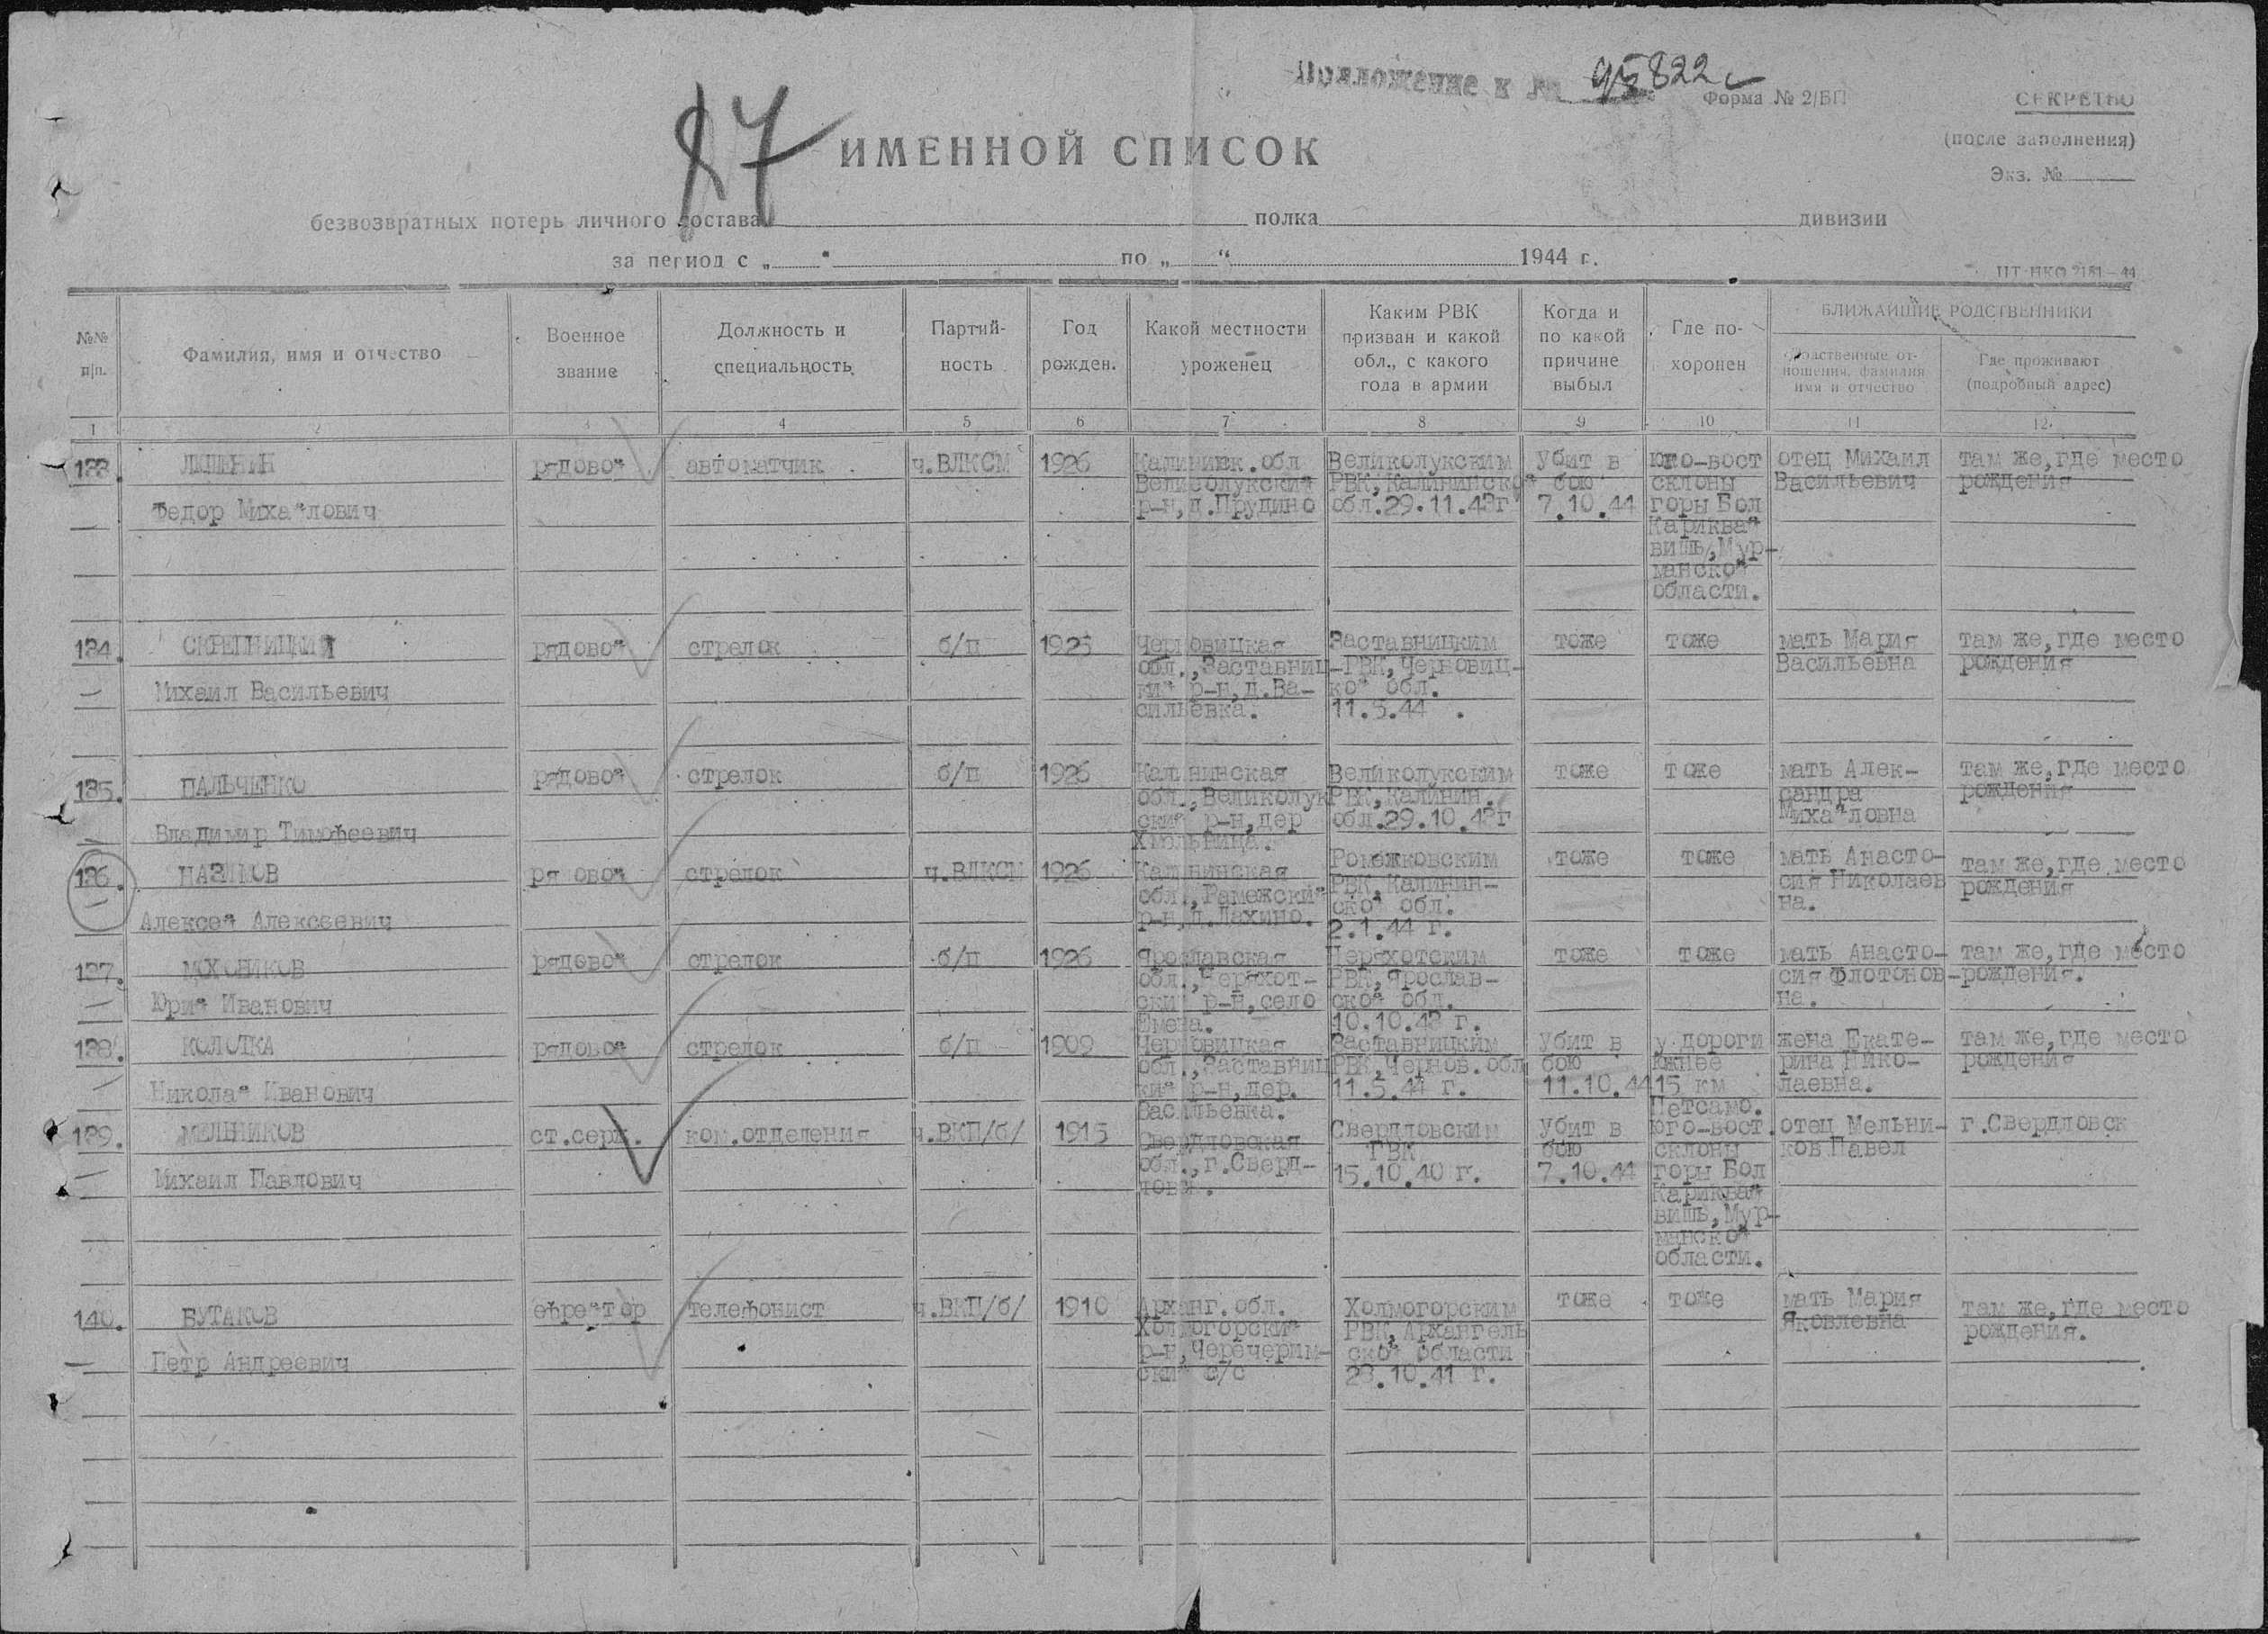 Приложение к № 95822с
Форма № 2/БП
СЕКРЕТНО
(после заполнения)
Экз. №
87
ИМЕННОЙ СПИСОК
безвозвратных потерь личного состава полка дивизии
за период с „ " по „ " 1944 г.
№№ п/п.
Фамилия, имя и отчество
Военное звание
Должность и специальность
Партий-
ность
Год рожден.
Какой местности уроженец
Каким РВК
призван и какой
обл., с какого
года в армии
Когда и
по какой
причине
выбыл
Где по-
хоронен
БЛИЖАЙШИЕ РОДСТВЕННИКИ
Родственные от-
ношения, фамилия
имя и отчество
Где проживают
(подробный адрес)
1 2 3 4 5 6 7 8 9 10 11 12
133.
Федор Михайлович
рядовой
автоматчик
ч.ВЛКСМ
1926
Калининк.обл
Великолукский
р-н,д.Прудино
Великолукским
РВК,Калининской
обл.29.11.43г
Убит в
бою
7.10.44
юго-вост
склоны
горы Бол
Кариквай
вишь,Мур-
манской
области.
отец Михаил
Васильевич
там же,где место
рождения
134.
СКРЕПНИЦКИЙ
Михаил Васильевич
рядовой
стрелок
б/п
1925
Черновицкая
обл.,Заставниц
кий р-н,д.Ва-
сильевка.
Заставницким
РВК,Черновиц-
кой обл.
11.5.44
тоже
тоже
мать Мария
Васильевна
там же,где место
рождения
135.
ПАЛЬЧЕНКО
Владимир Тимофеевич
рядовой
стрелок
б/п
1926
Калининская
обл.,Великолук
ский р-н,дер
Великолукским
РВК,Калинин.
обл.29.10.43г
тоже
тоже
мать Алек-
сандра
Михайловна
там же,где место
рождения
136.
НАЗИМОВ
Алексей Алексеевич
ря овой
стрелок
ч.ВЛКСМ
1926
Калининская
обл.,Рамежский
р-н,д.Лахино.
Ромежковским
РВК,Калинин-
ской обл.
2.1.44 г.
тоже
тоже
мать Анасто-
сия Николаев
на.
там же,где место
рождения
137.
МОХОНИКОВ
Юрий Иванович
рядовой
стрелок
б/п
1926
Ярославская
обл.,Черяхот-
ский р-н,село
РВК,Ярослав-
ской обл.
10.10.43 г.
тоже
тоже
мать Анасто-
сия Флотонов-
на.
там же,где место
рождения.
138.
КОЛОТКА
Николай Иванович
рядовой
стрелок
б/п
1909
Черновицкая
обл.,Заставниц
кий р-н,дер.
Васильевка.
Заставницким
РВК,Чернов.обл
11.5.44 г.
Убит в
бою
11.10.44
у дороги
южнее
15 км
Петсамо.
жена Екате-
рина Нико-
лаевна.
там же,где место
рождения
139.
МЕЛЬНИКОВ
Михаил Павлович
ст.серж.
ком.отделения
ч.ВКП/б/
1915
Свердловская
обл.,г.Сверд-
ловск.
Свердловским
ГВК
15.10.40 г.
Убит в
бою
7.10.44
юго-вост.
склоны
горы Бол
Кариквай
вишь,Мур-
манской
области.
отец Мельни-
ков Павел
г.Свердловск
140.
БУТАКОВ
Петр Андреевич
ефрейтор
телефонист
ч.ВКП/б/
1910
Арханг.обл.
Холмогорский
р-н,Черечерим-
ский с/с
Холмогорским
РВК,Архангель
ской области
23.10.41 г.
тоже
тоже
мать Мария
Яковлевна
там же,где место
рождения.